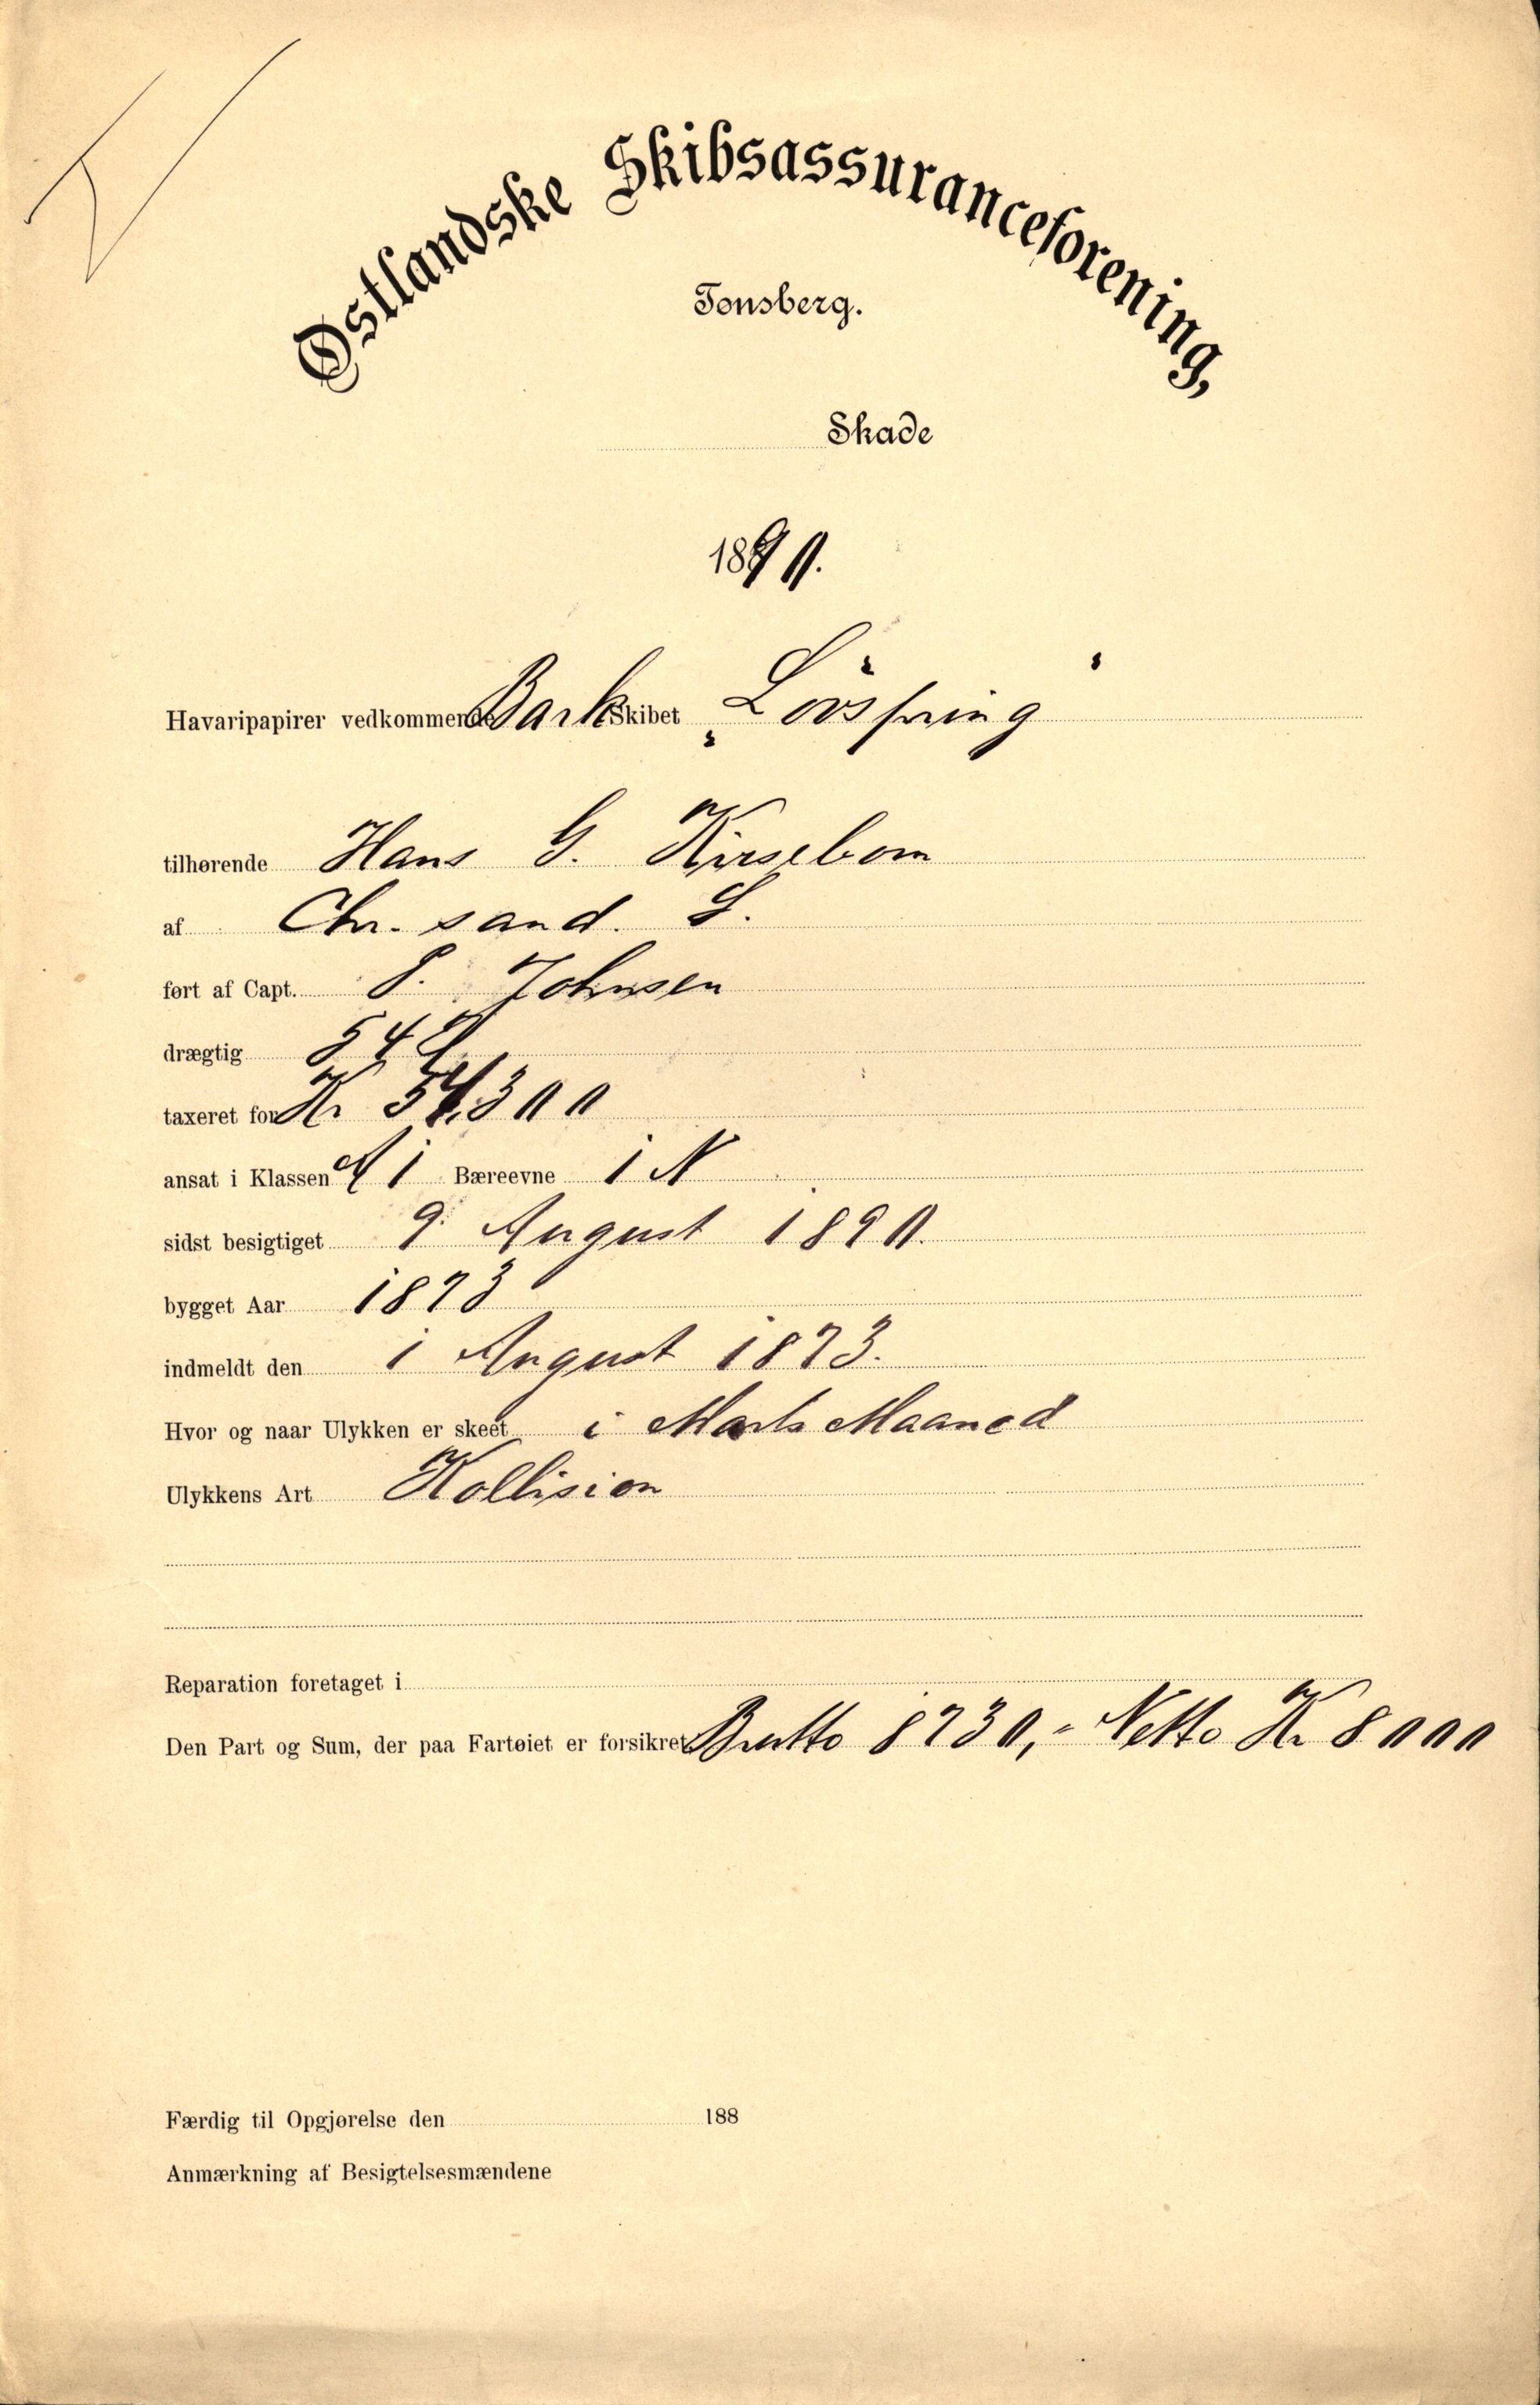 Østlandske Skibsassuranceforening,
Tønsberg.
Skade
1890.
Havaripapirer vedkommende Bark Skibet „Lövspring"
tilhørende Hans G. Kirsebom
af Chr. sand. S.
ført af Capt. P. Johnsen
drægtig
taxeret for Kr 54,300
ansat i Klassen A 1 Bæreevne 1 N
sidst besigtiget 9. August 1890.
bygget Aar 1873
indmeldt den 1 August 1873.
Hvor og naar Ulykken er skeet i Marts Maaned
Ulykkens Art Kollision
Reparation foretaget i
Den Part og Sum, der paa Fartøiet er forsikret Brutto 8730,- Netto Kr 8000
Færdig til Opgjørelse den 188
Anmærkning af Besigtelsesmændene